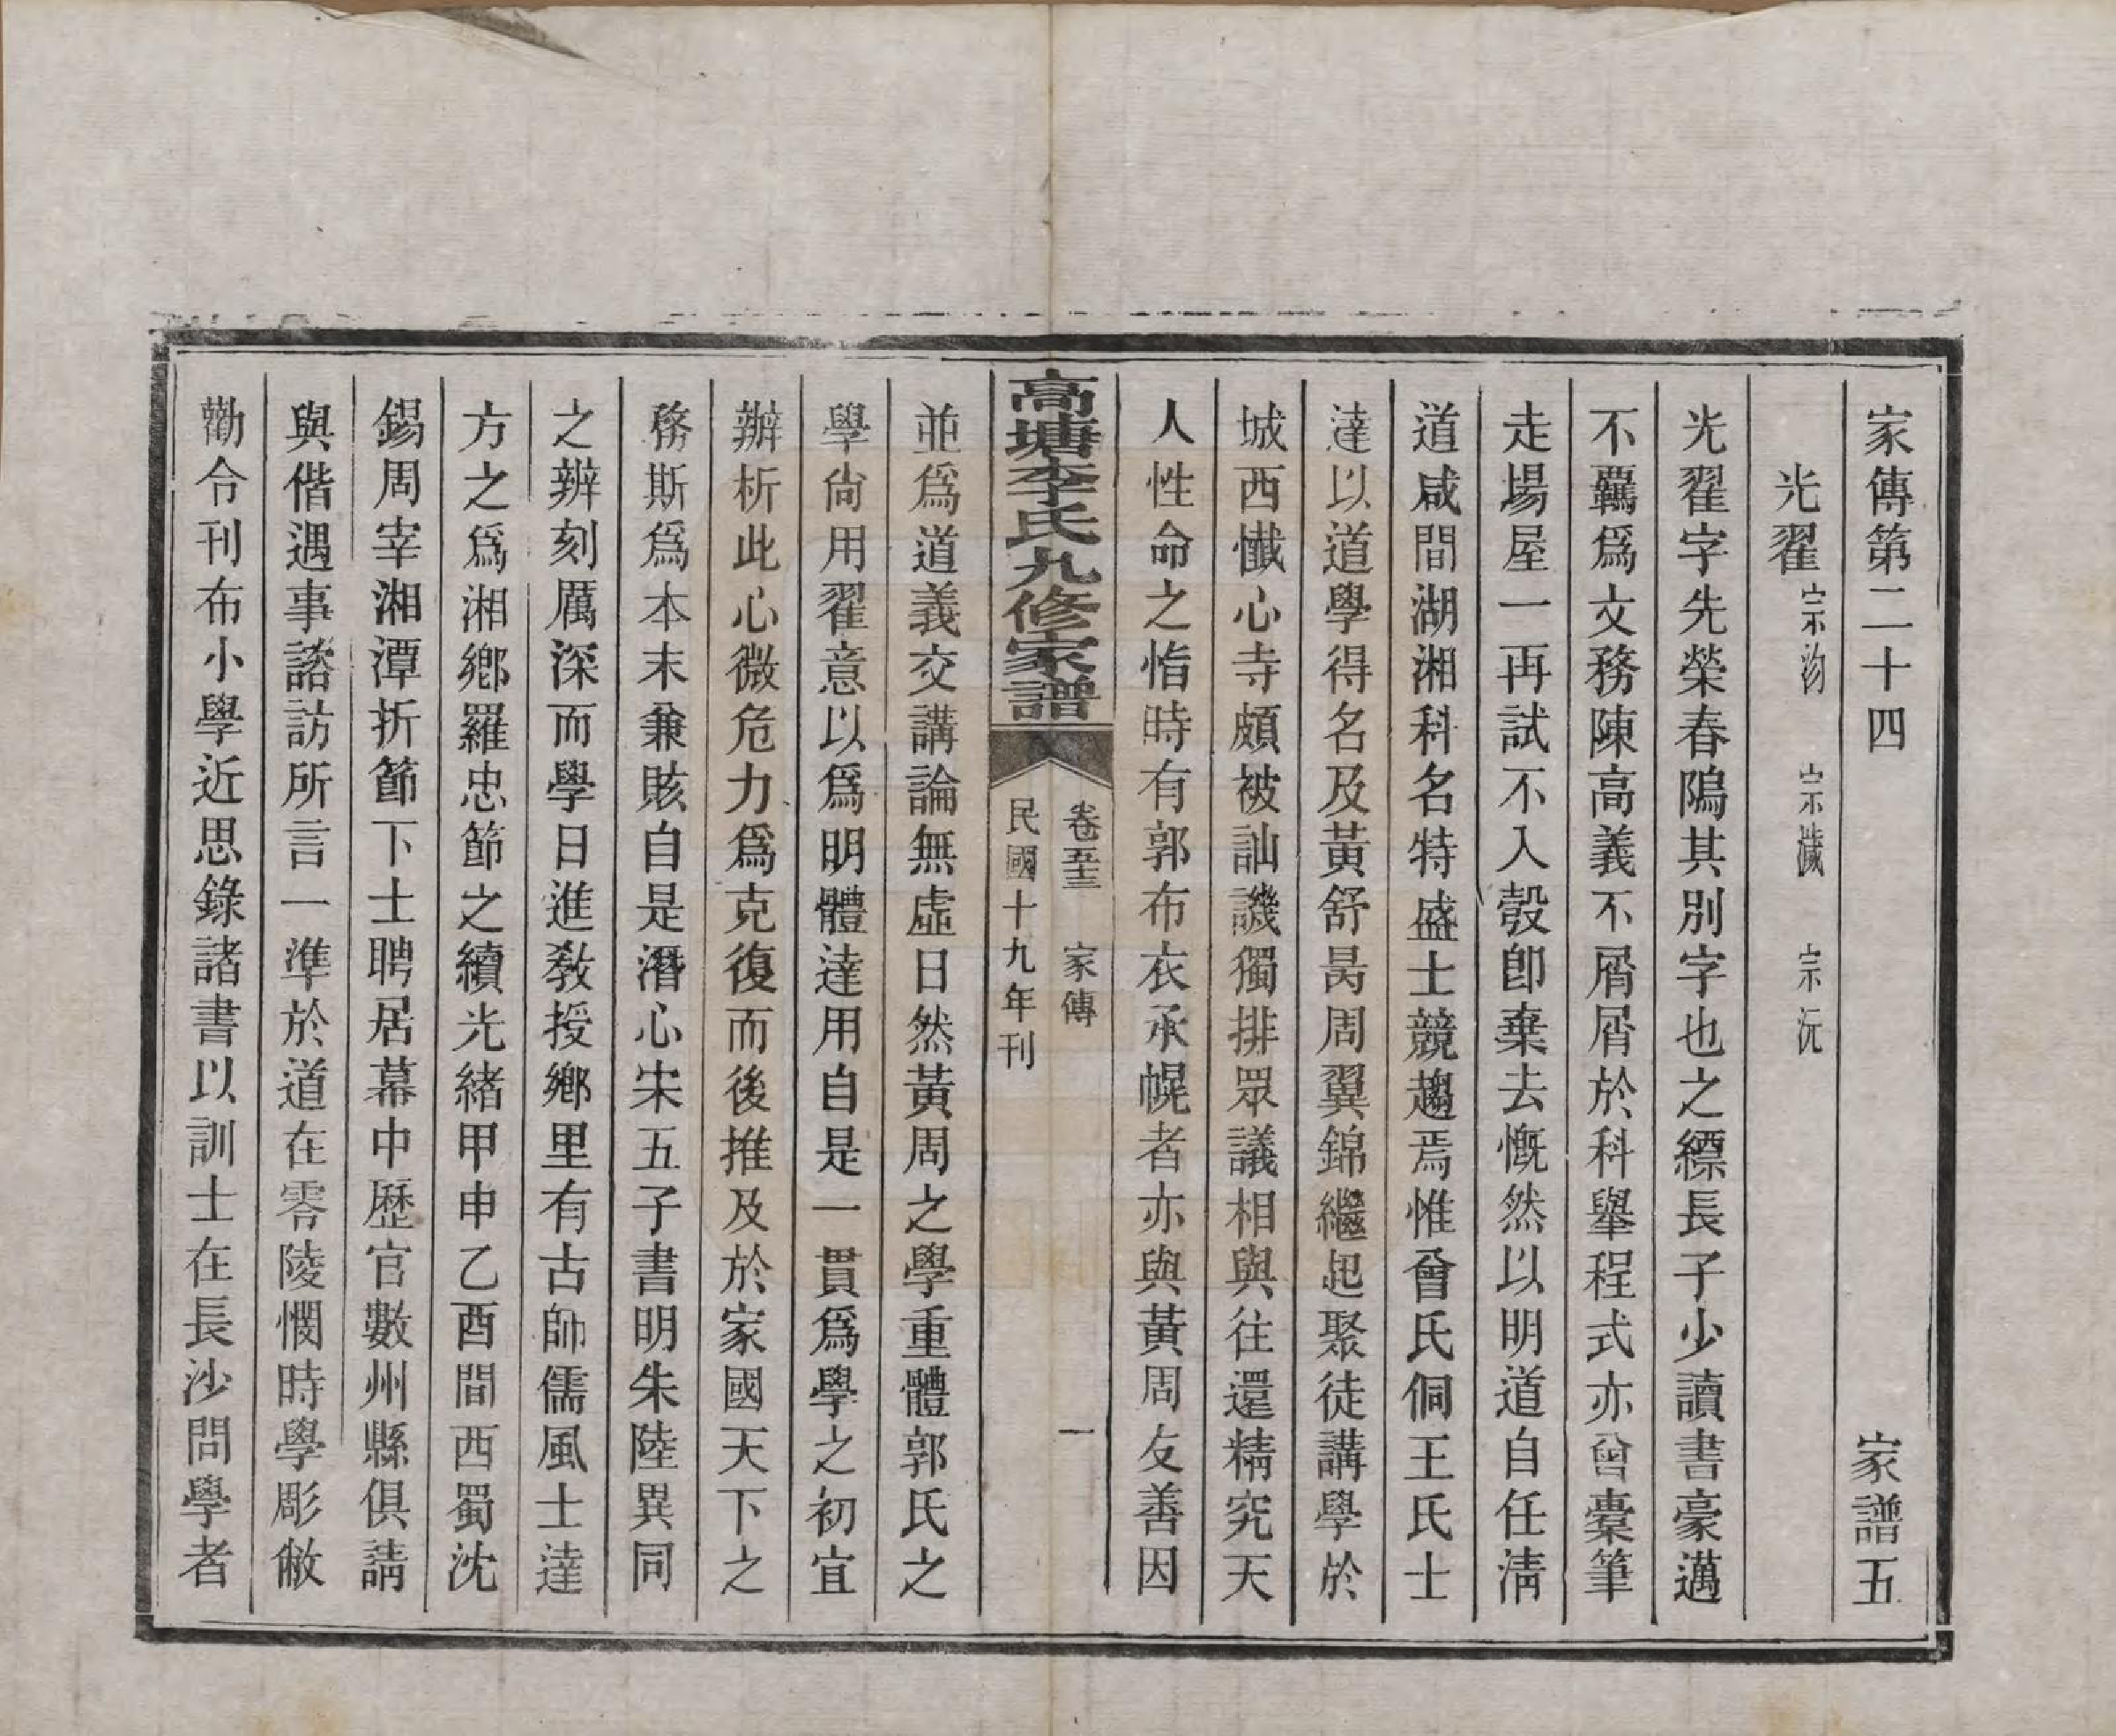 家傳第二十四　家譜五
光翟　宗洵　宗櫶　宗沅
光翟字先榮春隝其別字也之縹長子少讀書豪邁
不羈爲文務陳高義不屑屑於科舉程式亦曾橐筆
走場屋一再試不入彀卽棄去慨然以明道自任淸
道咸間湖湘科名特盛士競趨焉惟曾氏侗王氏士
達以道學得名及黃舒昺周翼錦繼起聚徒講學於
城西懺心寺頗被訕譏獨排眾議相與往還精究天
人性命之恉時有郭布衣承幌者亦與黃周友善因
高塘李氏九修家譜　卷五三　家傳　一
民國十九年刊
並爲道義交講論無虛日然黃周之學重體郭氏之
學尙用翟意以爲明體達用自是一貫爲學之初宜
辦析此心微危力爲克復而後推及於家國天下之
務斯爲本末兼賅自是潛心宋五子書明朱陸異同
之辨刻厲深而學日進敎授鄕里有古師儒風士達
方之爲湘鄕羅忠節之續光緒甲申乙酉間西蜀沈
錫周宰湘潭折節下士聘居幕中歷官數州縣俱請
與偕遇事諮訪所言一準於道在零陵憫時學彫敝
勸令刊布小學近思錄諸書以訓士在長沙問學者